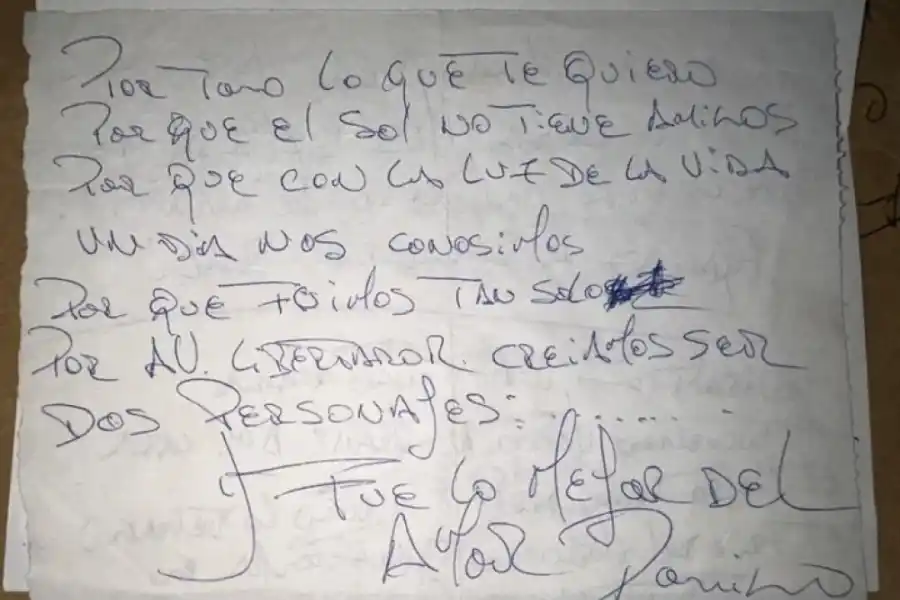 Por TODO LO QUE TE QUIERO
PorQUE El Sol NO TIENE AMIGOS
Por QUE CON LA LUZ DE LA ViDA
UN DIA NOS CONOSiMOS
Por QUE FUiMOS TAN SOLO
Por AV. LIBERTADOR. CREIAMOS SER
DOS PERSONAJES:.......
Y FUE LO MEJOR DEL
AMOR